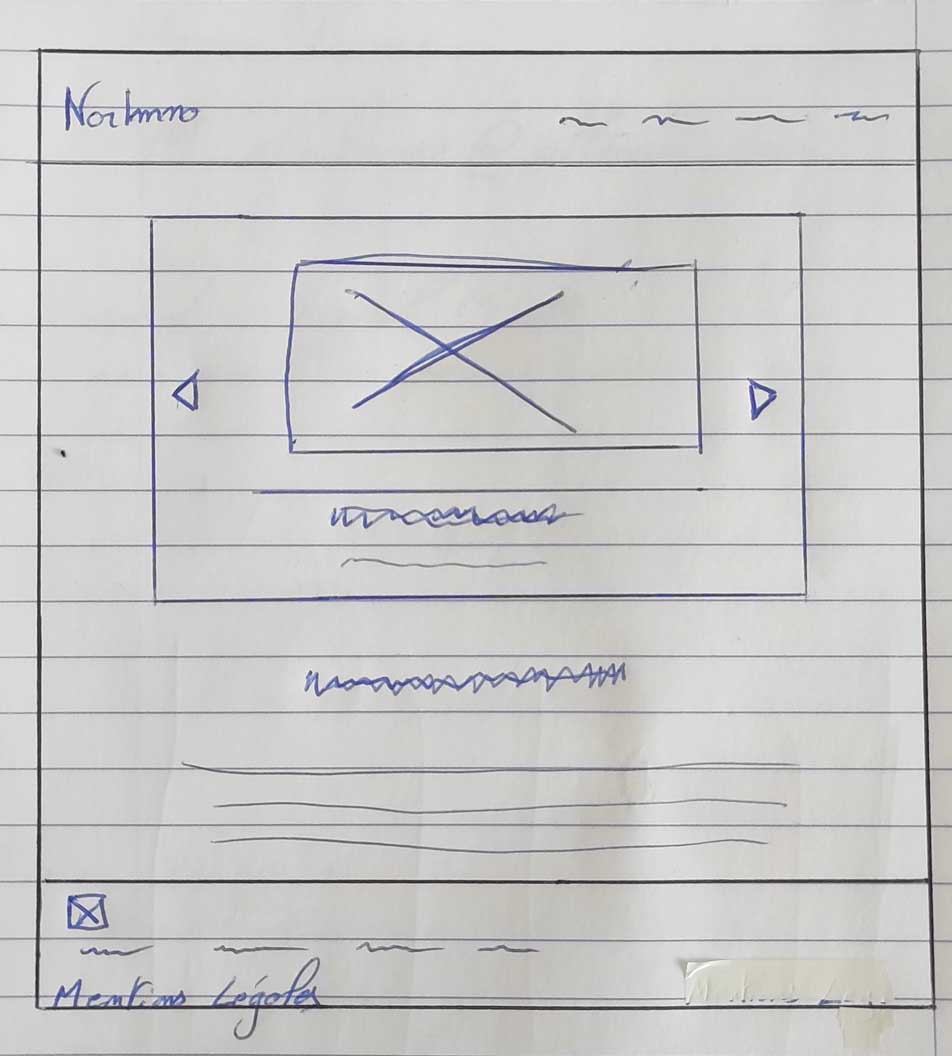 NorImmo
Mentions Légales